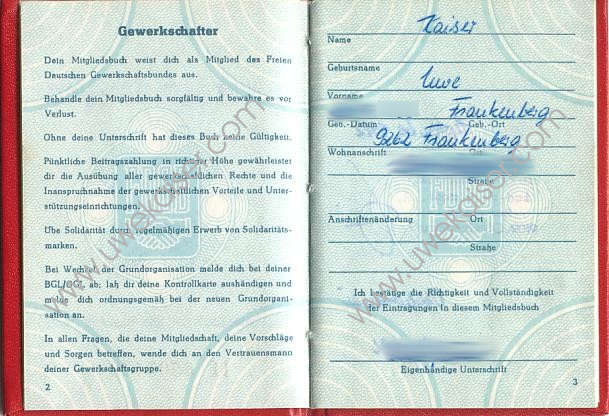 Gewerkschafter
Dein Mitgliedsbuch weist dich als Mitglied des Freien
Deutschen Gewerkschaftsbundes aus.
Behandle dein Mitgliedsbuch sorgfältig und bewahre es vor
Verlust.
Ohne deine Unterschrift hat dieses Buch keine Gültigkeit.
Pünktliche Beitragszahlung in richtiger Höhe gewährleistet
dir die Ausübung aller gewerkschaftlichen Rechte und die
Inanspruchnahme der gewerkschaftlichen Vorteile und Unter-
stützungseinrichtungen.
Übe Solidarität durch regelmäßigen Erwerb von Solidaritäts-
marken.
Bei Wechsel der Grundorganisation melde dich bei deiner
BGL/OGL ab; laß dir deine Kontrollkarte aushändigen und
melde dich ordnungsgemäß bei der neuen Grundorgani-
sation an.
In allen Fragen, die deine Mitgliedschaft, deine Vorschläge
und Sorgen betreffen, wende dich an den Vertrauensmann
deiner Gewerkschaftsgruppe.
2
Kaiser
Name
Geburtsname
Uwe
Vorname
Frankenberg
Geb.-Datum Geb.-Ort
9262 Frankenberg
Wohnanschrift
Straße
Anschriftenänderung Ort
Straße
Ich bestätige die Richtigkeit und Vollständigkeit
der Eintragungen in diesem Mitgliedsbuch
Eigenhändige Unterschrift
3
www.uwekaiser.com
www.uwekaiser.com